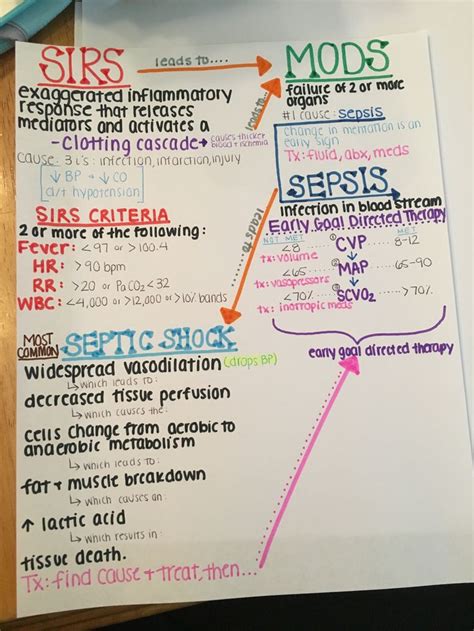 SIRS
leads to....
MODS
exaggerated inflammatory
response that releases
mediators and activates a
-Clotting cascade → causes thicker
blood + ischemia
cause: 3 i's: infection, infarction, injury
↓ BP → ↓ CO
d/t hypotension
leads to...
failure of 2 or more
organs
#1 cause: sepsis
change in mentation is an
early sign
Tx: fluid, abx, meds
SIRS CRITERIA
2 or more of the following:
Fever: <97 or >100.4
HR: >90 bpm
RR: >20 or PaCO2 <32
WBC: <4,000 or >12,000 or >10% bands
leads to...
SEPSIS
infection in blood stream
Early Goal Directed Therapy
NOT MET MET
<8 ① CVP 8-12
Tx: volume
<65 ② MAP 65-90
Tx: vasopressors
<70% ③ SCVO2 >70%
Tx: inotropic meds
early goal directed therapy
MOST
COMMON
SEPTIC SHOCK
widespread vasodilation (drops BP)
↳ which leads to:
decreased tissue perfusion
↳ which causes:
cells change from aerobic to
anaerobic metabolism
↳ which leads to:
fat + muscle breakdown
↳ which causes an:
↑ lactic acid
↳ which results in:
tissue death.
Tx: find cause + treat, then...